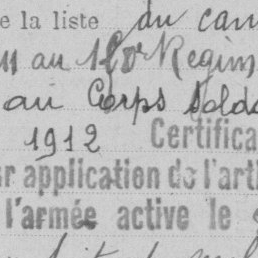 e la liste du can
au 1 Regim
au Corps Solda
1912 Certifica
r application de l'arti
l'armée active le